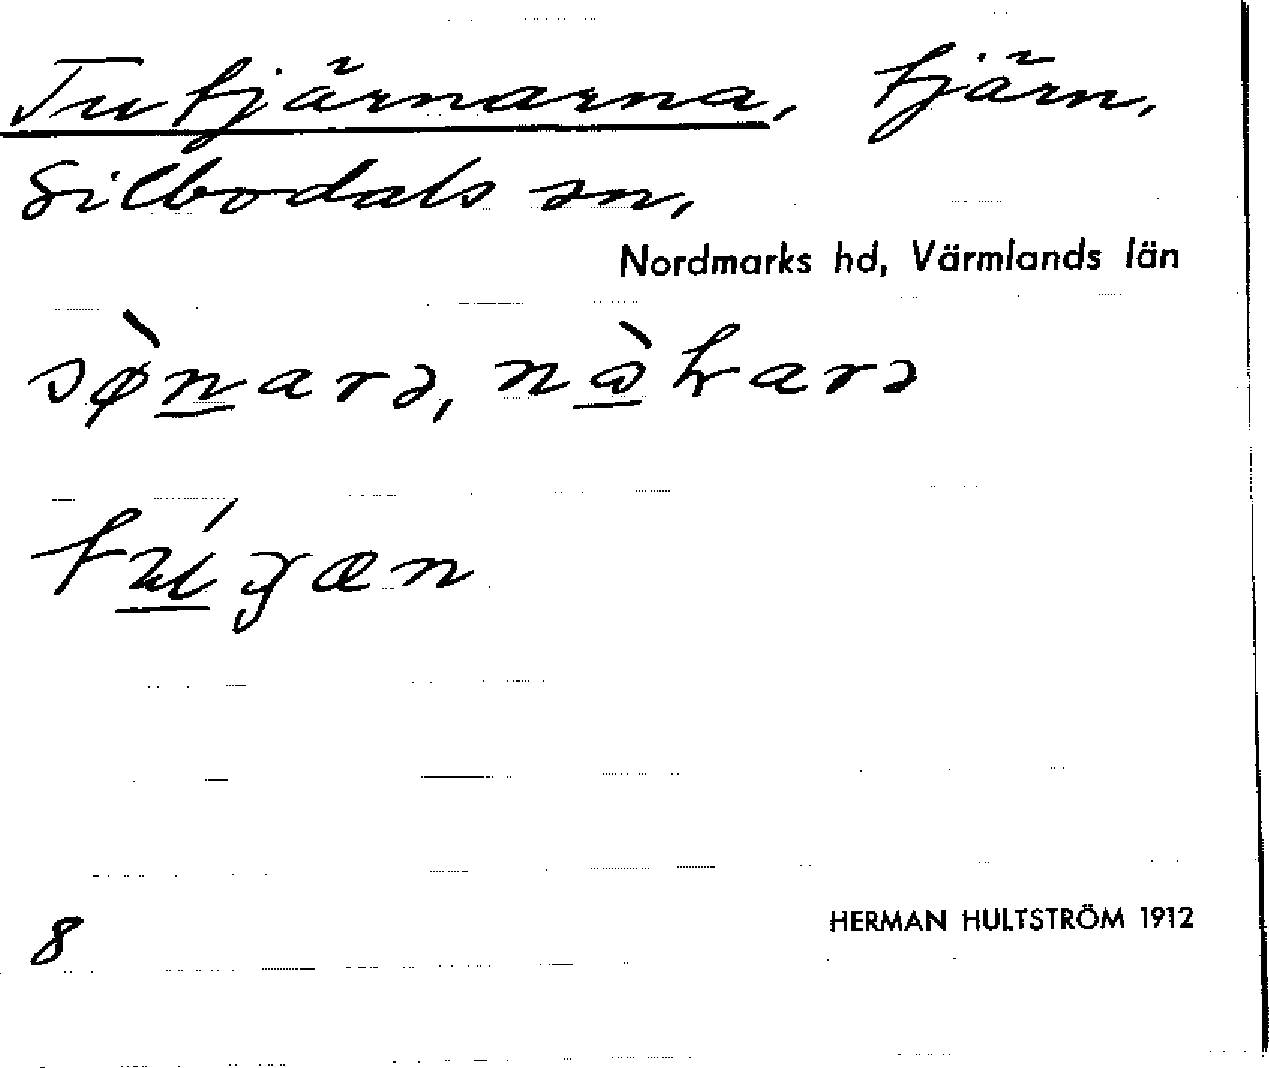 Tutjärnarna, tjärn,
Silbodals sn,
Nordmarks hd, Värmlands län
sø̀narə, nὼkarə
túɣæn
8
HERMAN HULTSTRÖM 1912